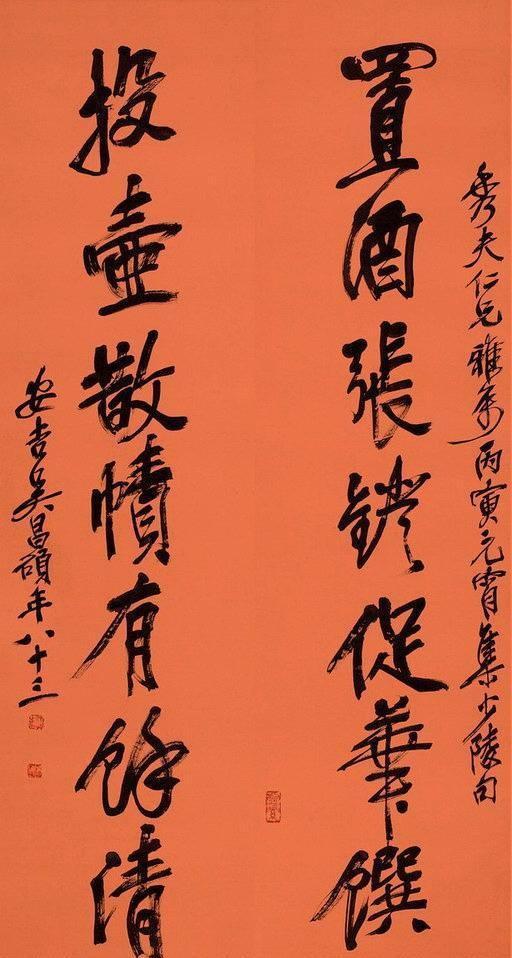 秀夫仁兄雅属丙寅元宵集少陵句
置酒張鐙促華饌
投壺散幘有餘清
安吉吳昌碩年八十三